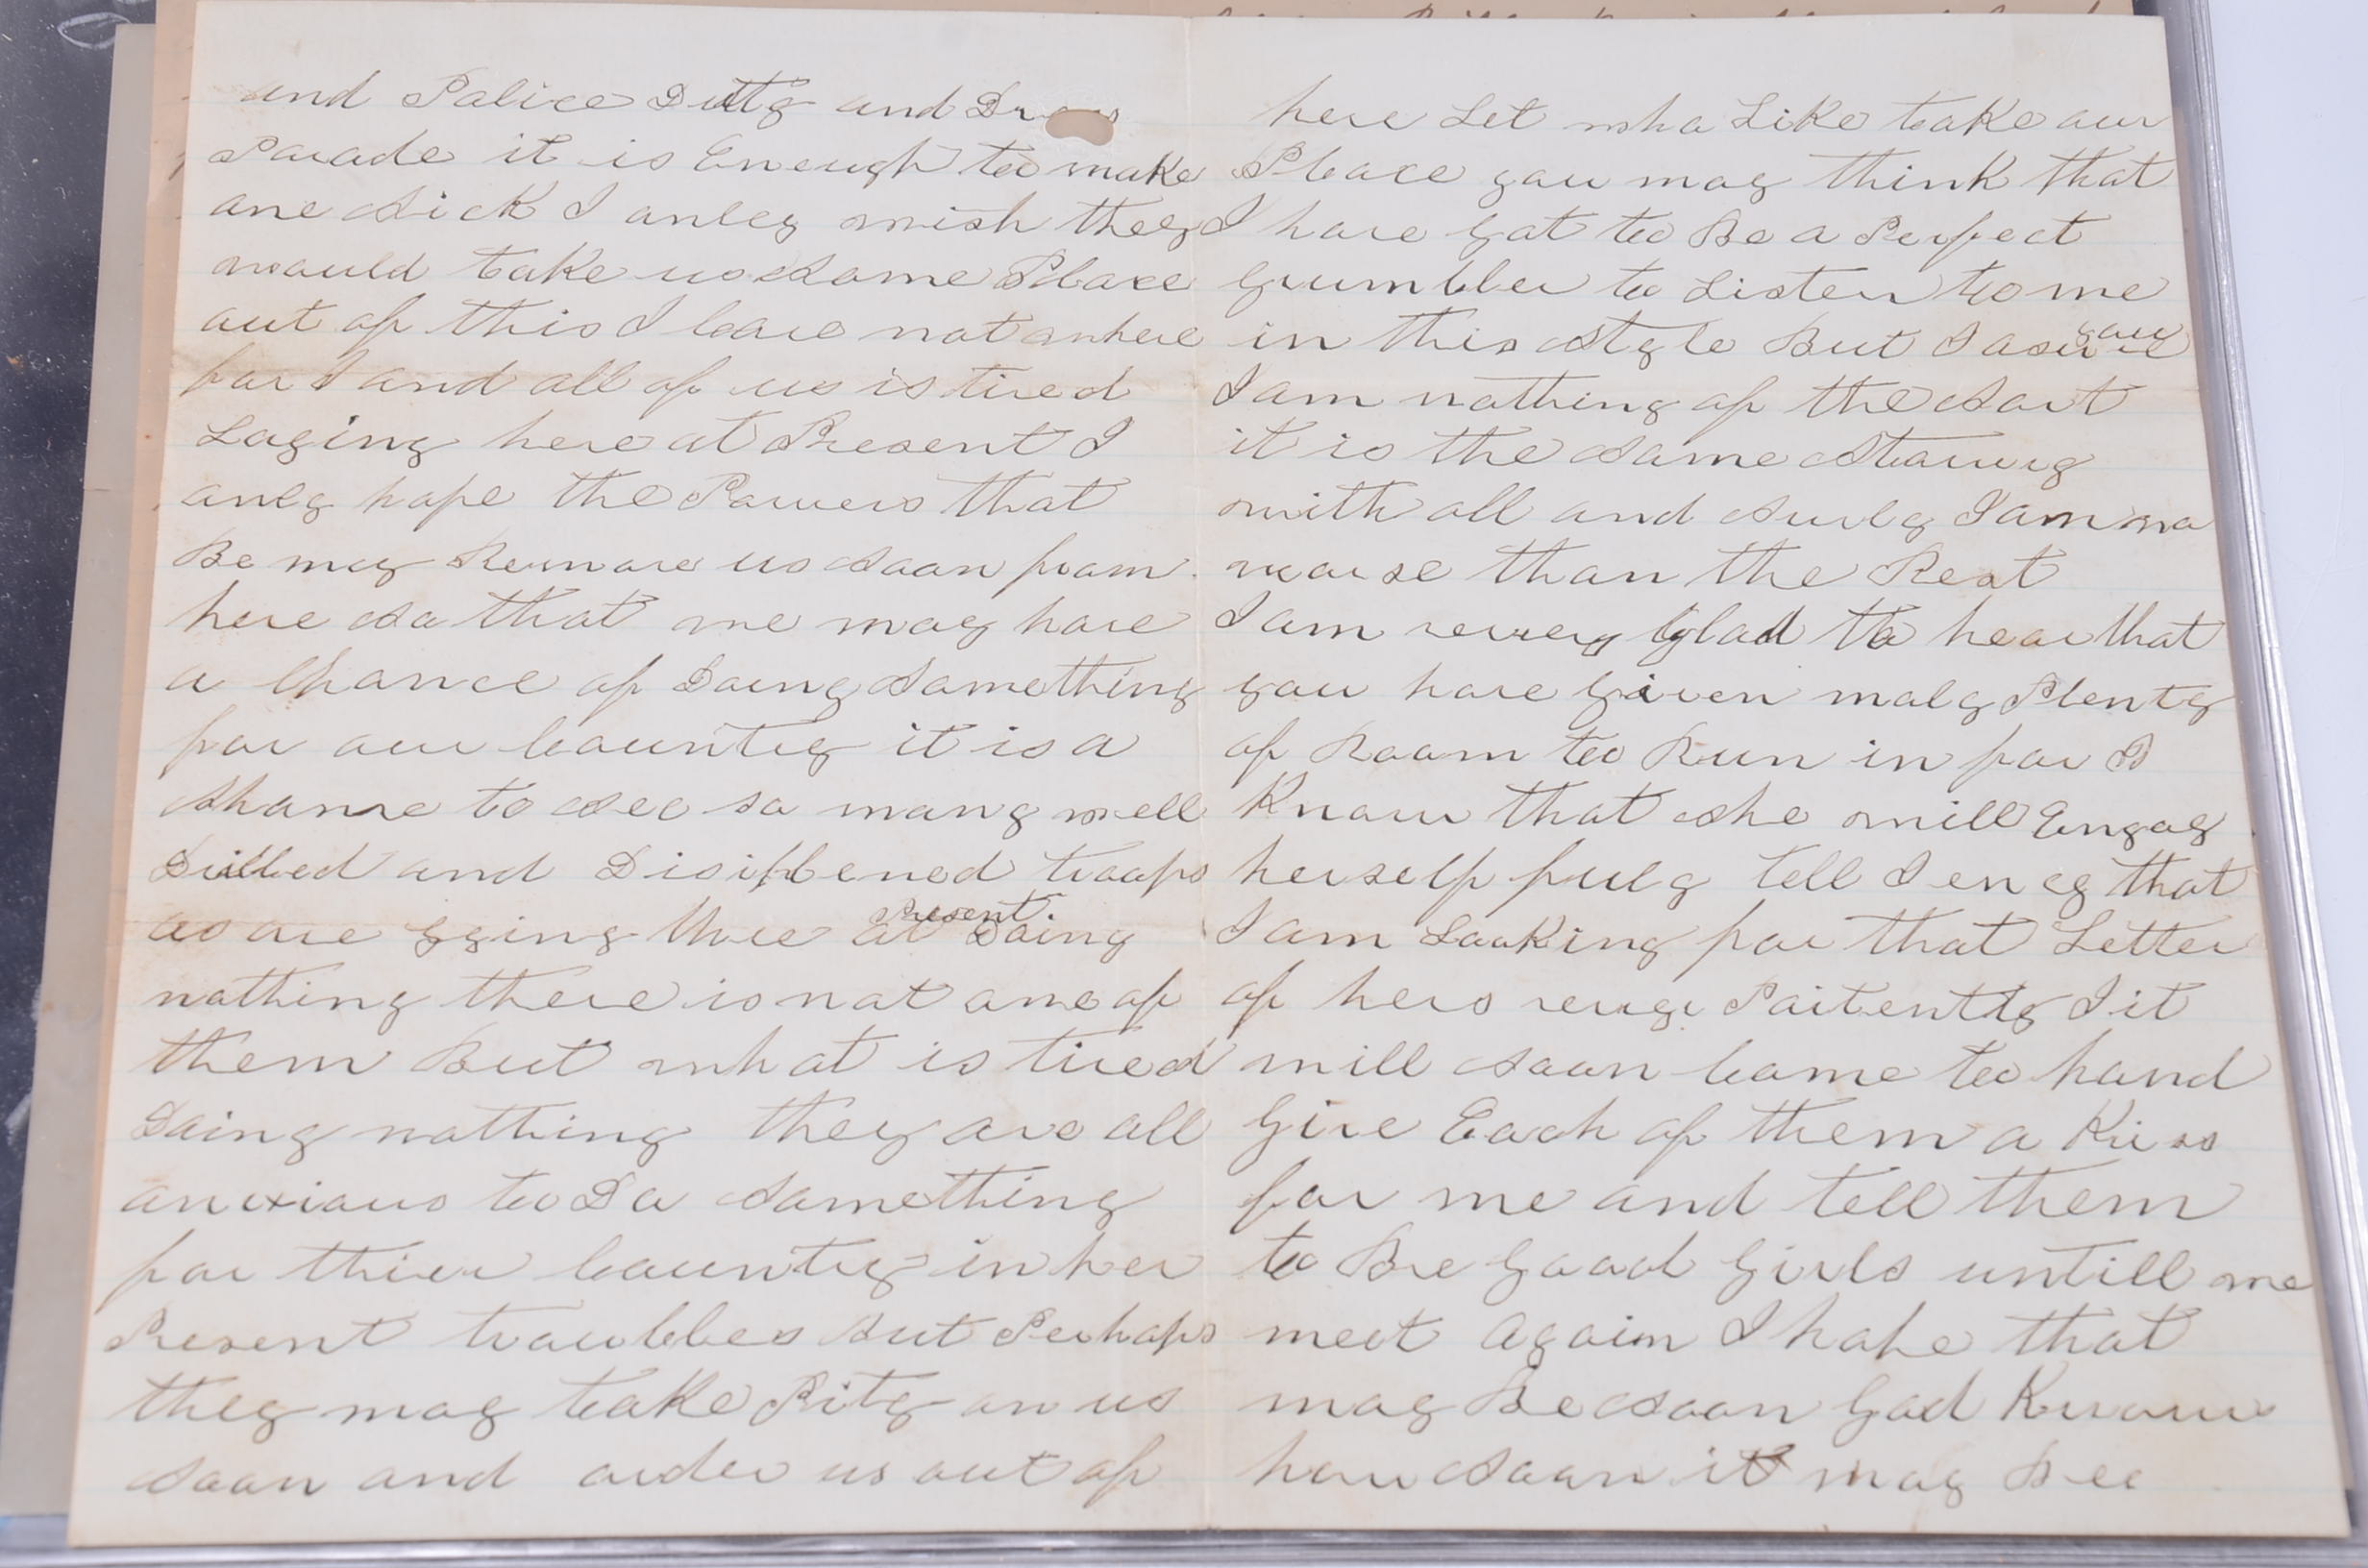 and Police Dutty and
Parade it is Enough too make
one sick I onley wish they
would take us some Place
out of this I care not where
for I and all of us is tired
Laying here at Present I
only hope the Powers that
Be may Remove us soon from
here so that we may have
a chance of Doing something
for our country it is a
shame to see so many well
Drilled and Disiplened troops
as are lying there at Present Doing
nothing there is not one of
them But what is tired
Doing nothing they are all
anxious too Do something
for thier country in her
Present troubbles but Perhaps
they may take Pity on us
soon and order us out of
here Let who Like take our
Place you may think that
I have got too Be a Perfect
grumbler to Listen too me
in this style But I asure you
I am nothing of the sort
it is the same Storuy
with all and surly I am no
worse than the Rest
I am verrey glad to hear that
you have given moly Plenty
of Room too Run in for I
Know that she will Engoy
herself fuly tell Jency that
I am Looking for that Letter
of hers very Paitently I it
will soon come too hand
Give Each of them a Kiss
for me and tell them
to Bee good girls untill we
meet again I hope that
may Be soon God Knows
how soon it may Bee